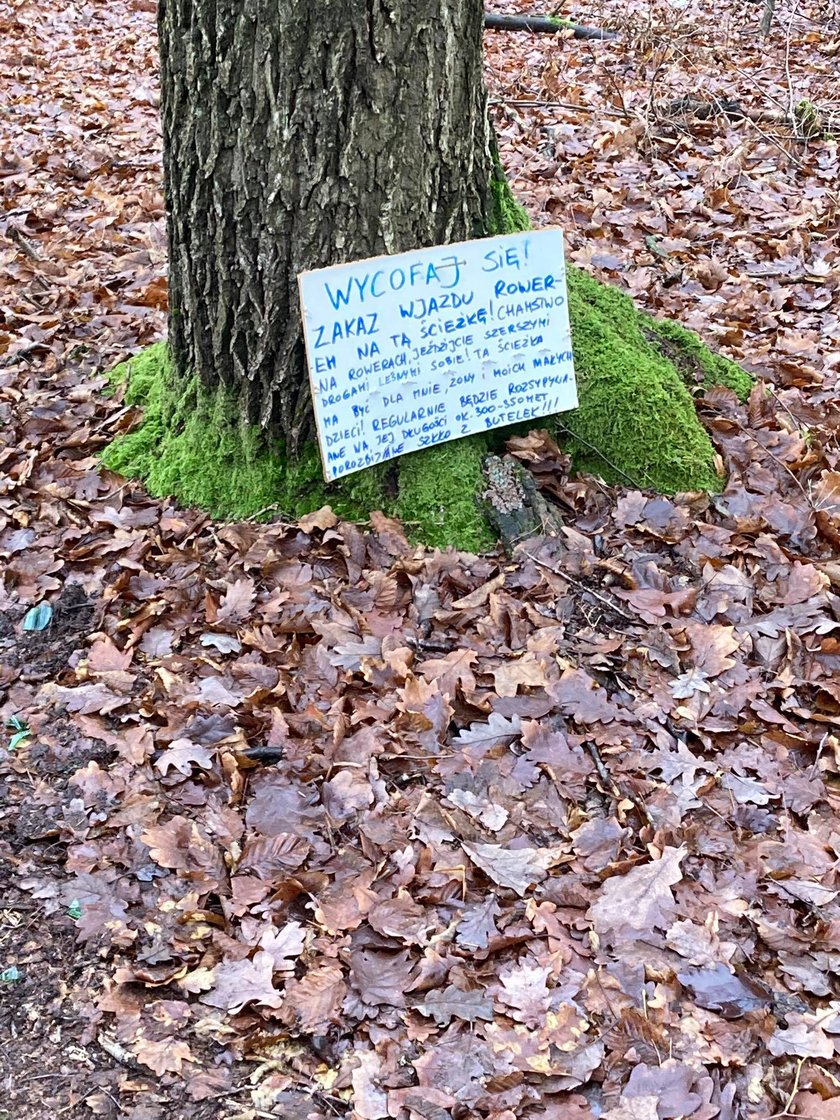 WYCOFAJ SIĘ!
ZAKAZ WJAZDU ROWER-
EM NA TĄ ŚCIEŻKĘ! CHAMSTWO
NA ROWERACH, JEŹDZIJCIE SZERSZYMI
DROGAMI LEŚNYMI SOBIE! TA ŚCIEŻKA
MA BYĆ DLA MNIE, ŻONY I MOICH MAŁYCH
DZIECI! REGULARNIE BĘDZIE ROZSYPYWA-
ANE NA JEJ DŁUGOŚCI OK. 300-350 MET.
POROZBIJANE SZKŁO Z BUTELEK!!!